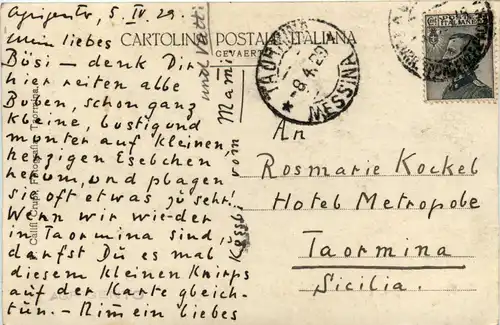 Agrigento, 5. IV. 29.
Mein liebes
Bösi – denk Dir
hier reiten alle
Buben, schon ganz
kleine, lustig und
munter auf kleinen,
herzigen Eselchen
herum, und plagen
sie oft etwas zu sehr!
Wenn wir wieder
in Taormina sind,
darfst Du es mal
diesem kleinen Knirps
auf der Karte gleich-
tun. – Nimm ein liebes
vom Mami
und Vatti
CARTOLINA POSTALE ITALIANA
GEVAERT
TAORMINA
-8.4.29
* MESSINA
An
Rosmarie Kockel
Hotel Metropole
Taormina
Sicilia.